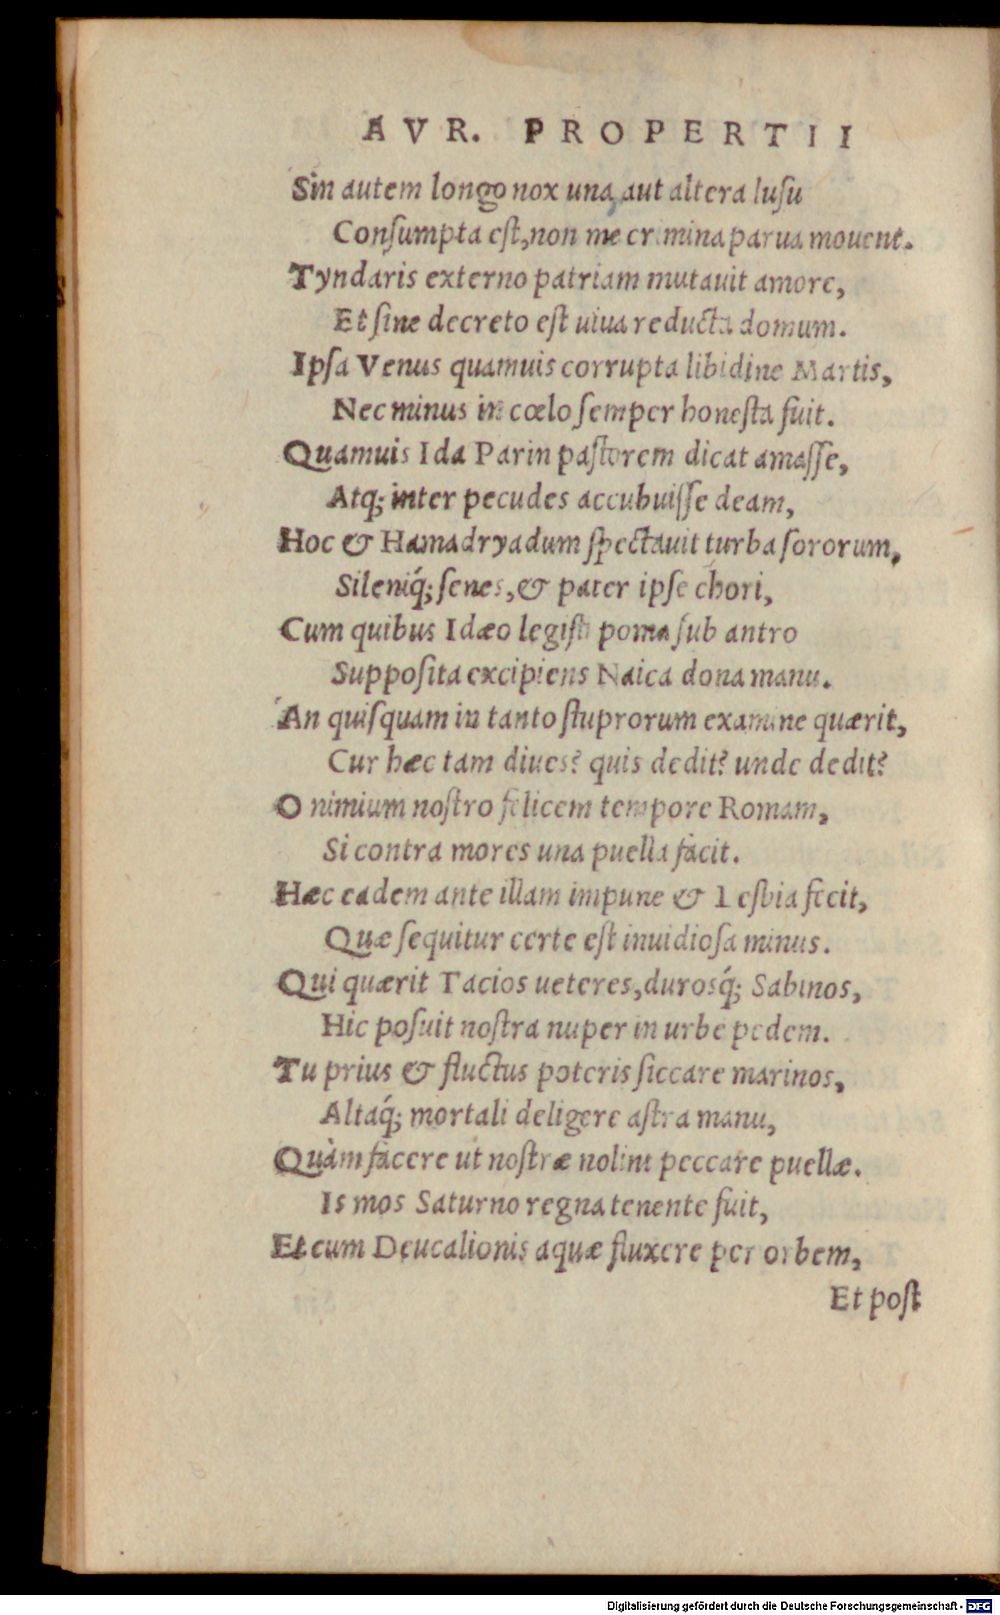 AVR. PROPERTII
Sin autem longo nox una, aut altera lusu
Consumpta est, non me crimina parua mouent.
Tyndaris externo patriam mutauit amore,
Et sine decreto est uiua reducta domum.
Ipsa Venus quamuis corrupta libidine Martis,
Nec minus in cœlo semper honesta fuit.
Quamuis Ida Parin pastorem dicat amasse,
Atq; inter pecudes accubuisse deam,
Hoc & Hamadryadum spectauit turba sororum,
Sileniq́; senes, & pater ipse chori,
Cum quibus Idæo legisti poma sub antro
Supposita excipiens Naica dona manu.
An quisquam in tanto stuprorum examine quærit,
Cur hæc tam diues? quis dedit? unde dedit?
O nimium nostro felicem tempore Romam,
Si contra mores una puella facit.
Hæc eadem ante illam impune & Lesbia fecit,
Quæ sequitur certe est inuidiosa minus.
Qui quærit Tacios ueteres, durosq́; Sabinos,
Hic posuit nostra nuper in urbe pedem.
Tu prius & fluctus poteris siccare marinos,
Altaq́; mortali deligere astra manu,
Quàm facere ut nostræ nolint peccare puellæ.
Is mos Saturno regna tenente fuit,
Et cum Deucalionis aquæ fluxere per orbem,
Et post
Digitalisierung gefördert durch die Deutsche Forschungsgemeinschaft - DFG